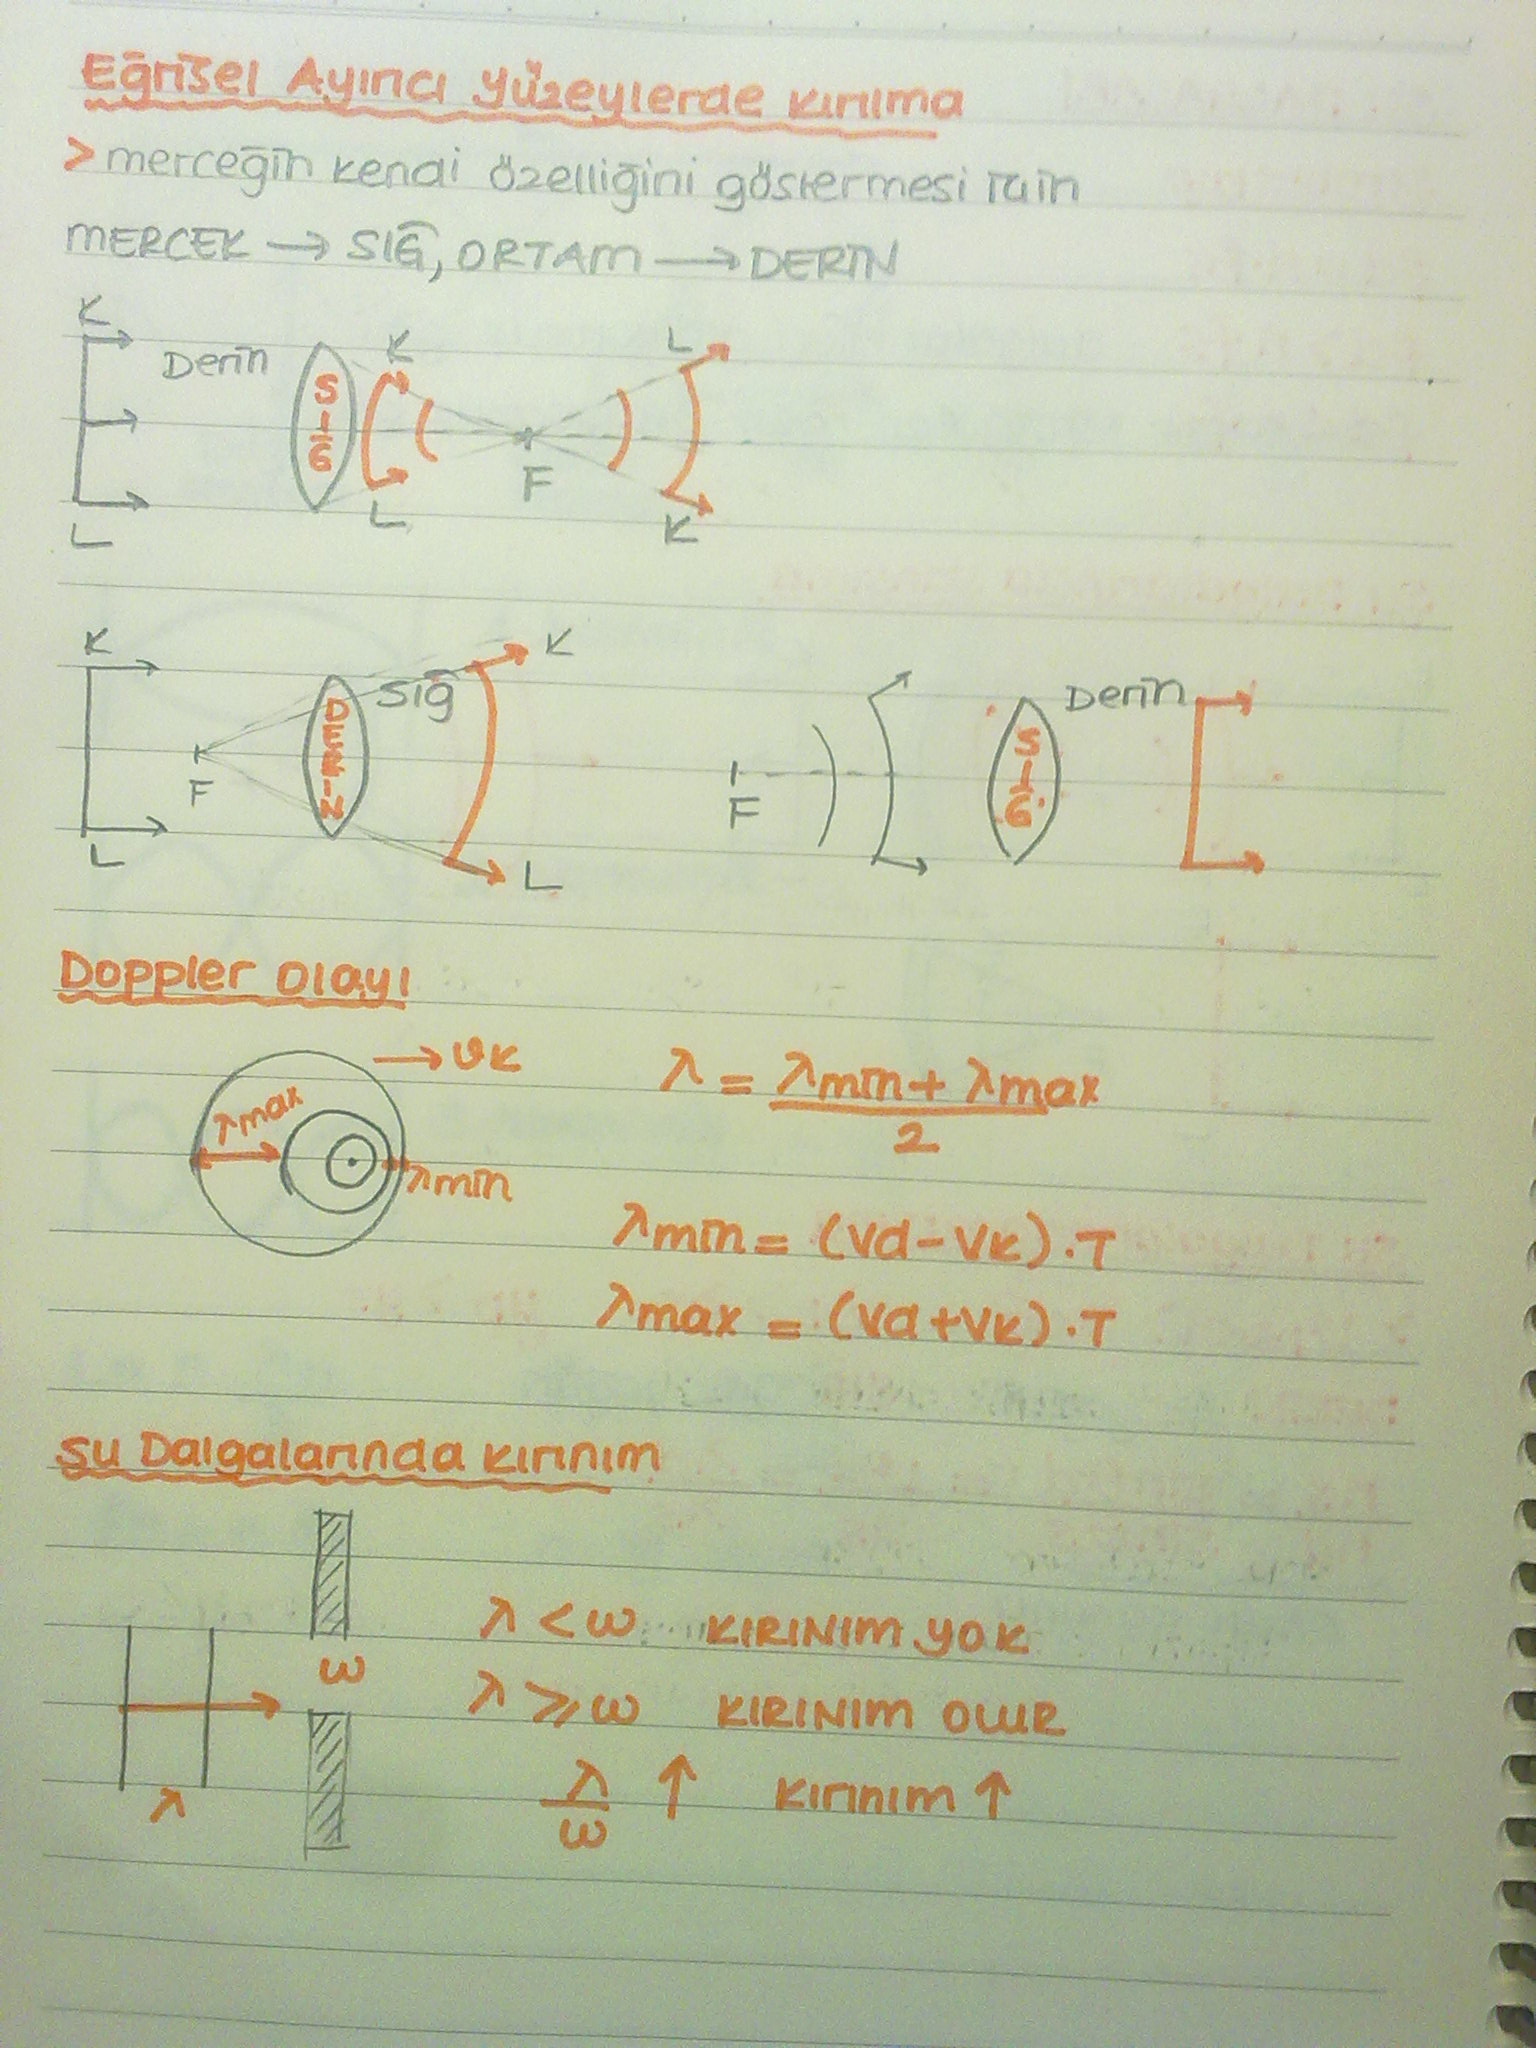 Eğrisel Ayırıcı Yüzeylerde kırılma
> merceğin kendi özelliğini göstermesi için
MERCEK → SIĞ, ORTAM → DERİN
K
Derin
SIĞ
K
L
L
F
L
K
K
L
F
DERİN
Sığ
K
L
F
SIĞ
Derin
Doppler Olayı
→ υK
λmax
λmin
λ = λmin + λmax / 2
λmin = (Vd - Vk) . T
λmax = (Vd + Vk) . T
Su Dalgalarında Kırınım
λ
ω
λ < ω KIRINIM YOK
λ ⩾ ω KIRINIM OLUR
λ / ω ↑ kırınım ↑